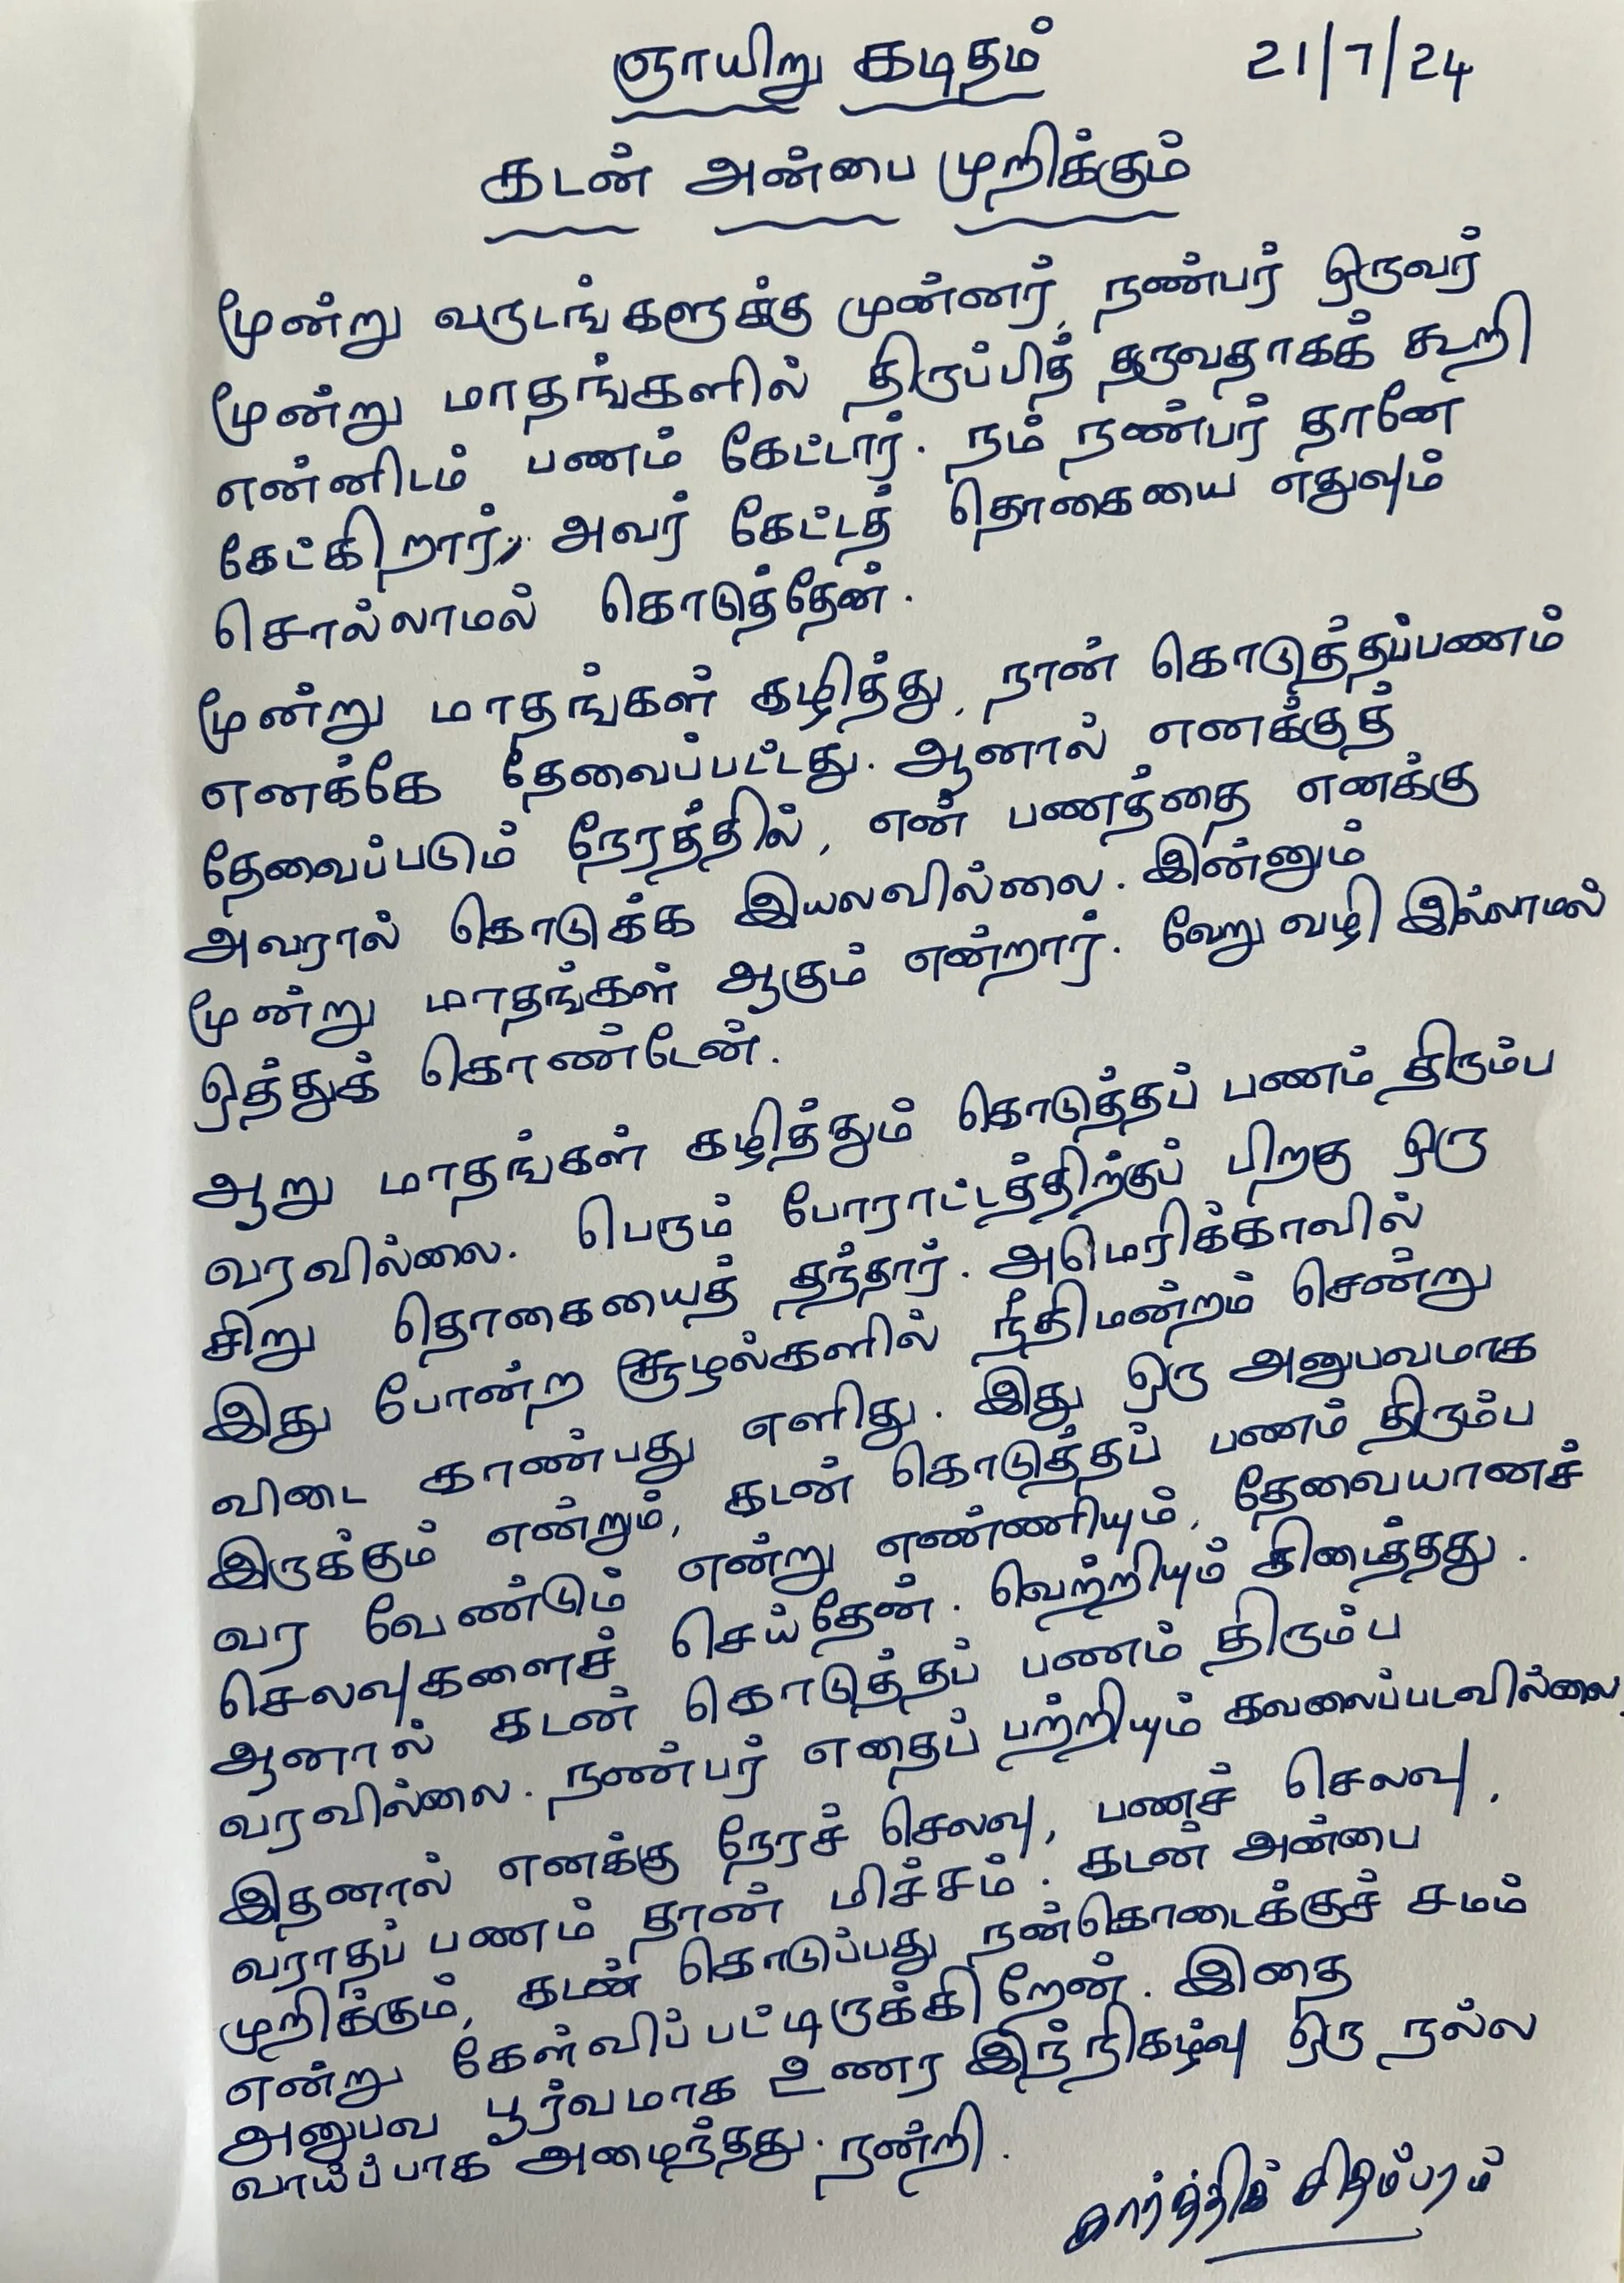 ஞாயிறு கடிதம் 21/7/24
கடன் அன்பை முறிக்கும்
மூன்று வருடங்களுக்கு முன்னர், நண்பர் ஒருவர்
மூன்று மாதங்களில் திருப்பித் தருவதாகக் கூறி
என்னிடம் பணம் கேட்டார். நம் நண்பர் தானே
கேட்கிறார், அவர் கேட்டத் தொகையை எதுவும்
சொல்லாமல் கொடுத்தேன்.
மூன்று மாதங்கள் கழித்து, நான் கொடுத்தப்பணம்
எனக்கே தேவைப்பட்டது. ஆனால் எனக்குத்
தேவைப்படும் நேரத்தில், என் பணத்தை எனக்கு
அவரால் கொடுக்க இயலவில்லை. இன்னும்
மூன்று மாதங்கள் ஆகும் என்றார். வேறு வழி இல்லாமல்
ஒத்துக் கொண்டேன்.
ஆறு மாதங்கள் கழித்தும் கொடுத்தப் பணம் திரும்ப
வரவில்லை. பெரும் போராட்டத்திற்குப் பிறகு ஒரு
சிறு தொகையைத் தந்தார். அமெரிக்காவில்
இது போன்ற சூழல்களில் நீதிமன்றம் சென்று
விடை காண்பது எளிது. இது ஒரு அனுபவமாக
இருக்கும் என்றும், கடன் கொடுத்தப் பணம் திரும்ப
வர வேண்டும் என்று எண்ணியும், தேவையானச்
செலவுகளைச் செய்தேன். வெற்றியும் கிடைத்தது.
ஆனால் கடன் கொடுத்தப் பணம் திரும்ப
வரவில்லை. நண்பர் எதைப் பற்றியும் கவலைப்படவில்லை.
இதனால் எனக்கு நேரச் செலவு, பணச் செலவு,
வராதப் பணம் தான் மிச்சம். கடன் அன்பை
முறிக்கும், கடன் கொடுப்பது நன்கொடைக்குச் சமம்
என்று கேள்விப்பட்டிருக்கிறேன். இதை
அனுபவ பூர்வமாக உணர இந்நிகழ்வு ஒரு நல்ல
வாய்ப்பாக அமைந்தது. நன்றி.
கார்த்திக் சிதம்பரம்